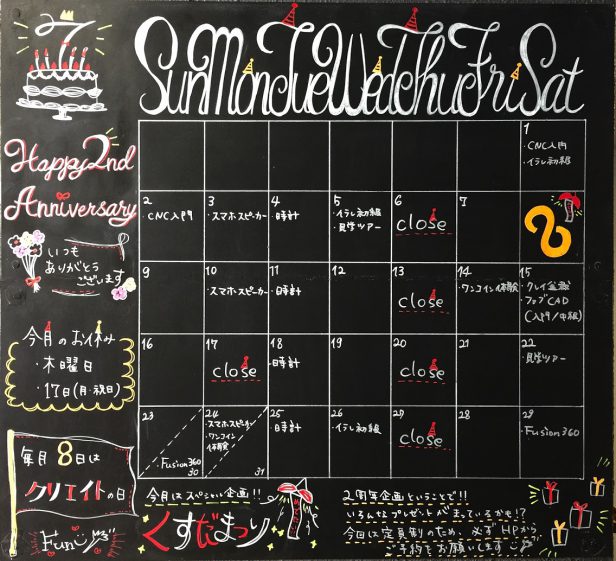 7
Sun Mon Tue Wed Thu Fri Sat
Happy 2nd
Anniversary
いつも
ありがとう
ございます
今月のお休み
・木曜日
・17日(月・祝日)
毎月8日は
クリエイトの日
1
・CNC入門
・イラレ初級
2
・CNC入門
3
・スマホスピーカー
4
・時計
5
・イラレ初級
・見学ツアー
6
close
7
8
9
10
・スマホスピーカー
11
・時計
12
13
close
14
・ワンコイン体験
15
・クレイ
・ファブCAD
(入門/中級)
16
17
close
18
・時計
19
20
close
21
22
・見学ツアー
23
・Fusion360
30
24
・スマホスピーカー
・ワンコイン
体験
31
25
・時計
26
・イラレ初級
27
close
28
29
・Fusion360
今月はスペシャル企画!!
くすだまつり
2周年企画ということで!!
いろんなプレゼントがまっているかも!?
今回は定員制のため、必ずHPから
ご予約をお願いします